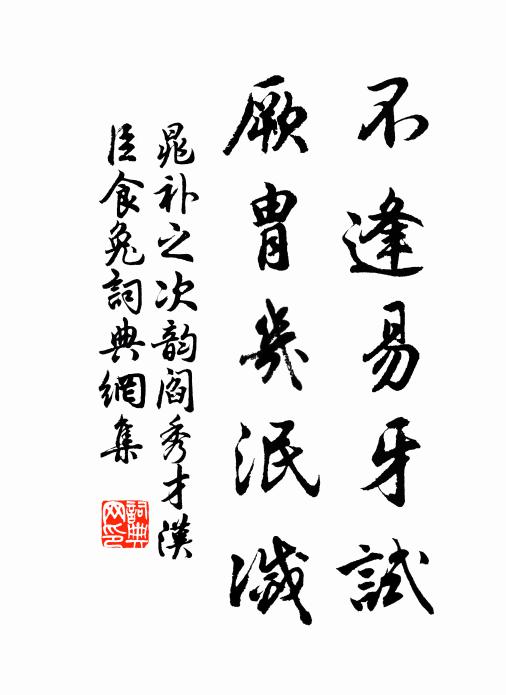 不逢易牙試
厥胄幾泯滅
晁补之次韵阎秀才漢
臣食兔詞典網集
詞典
网印